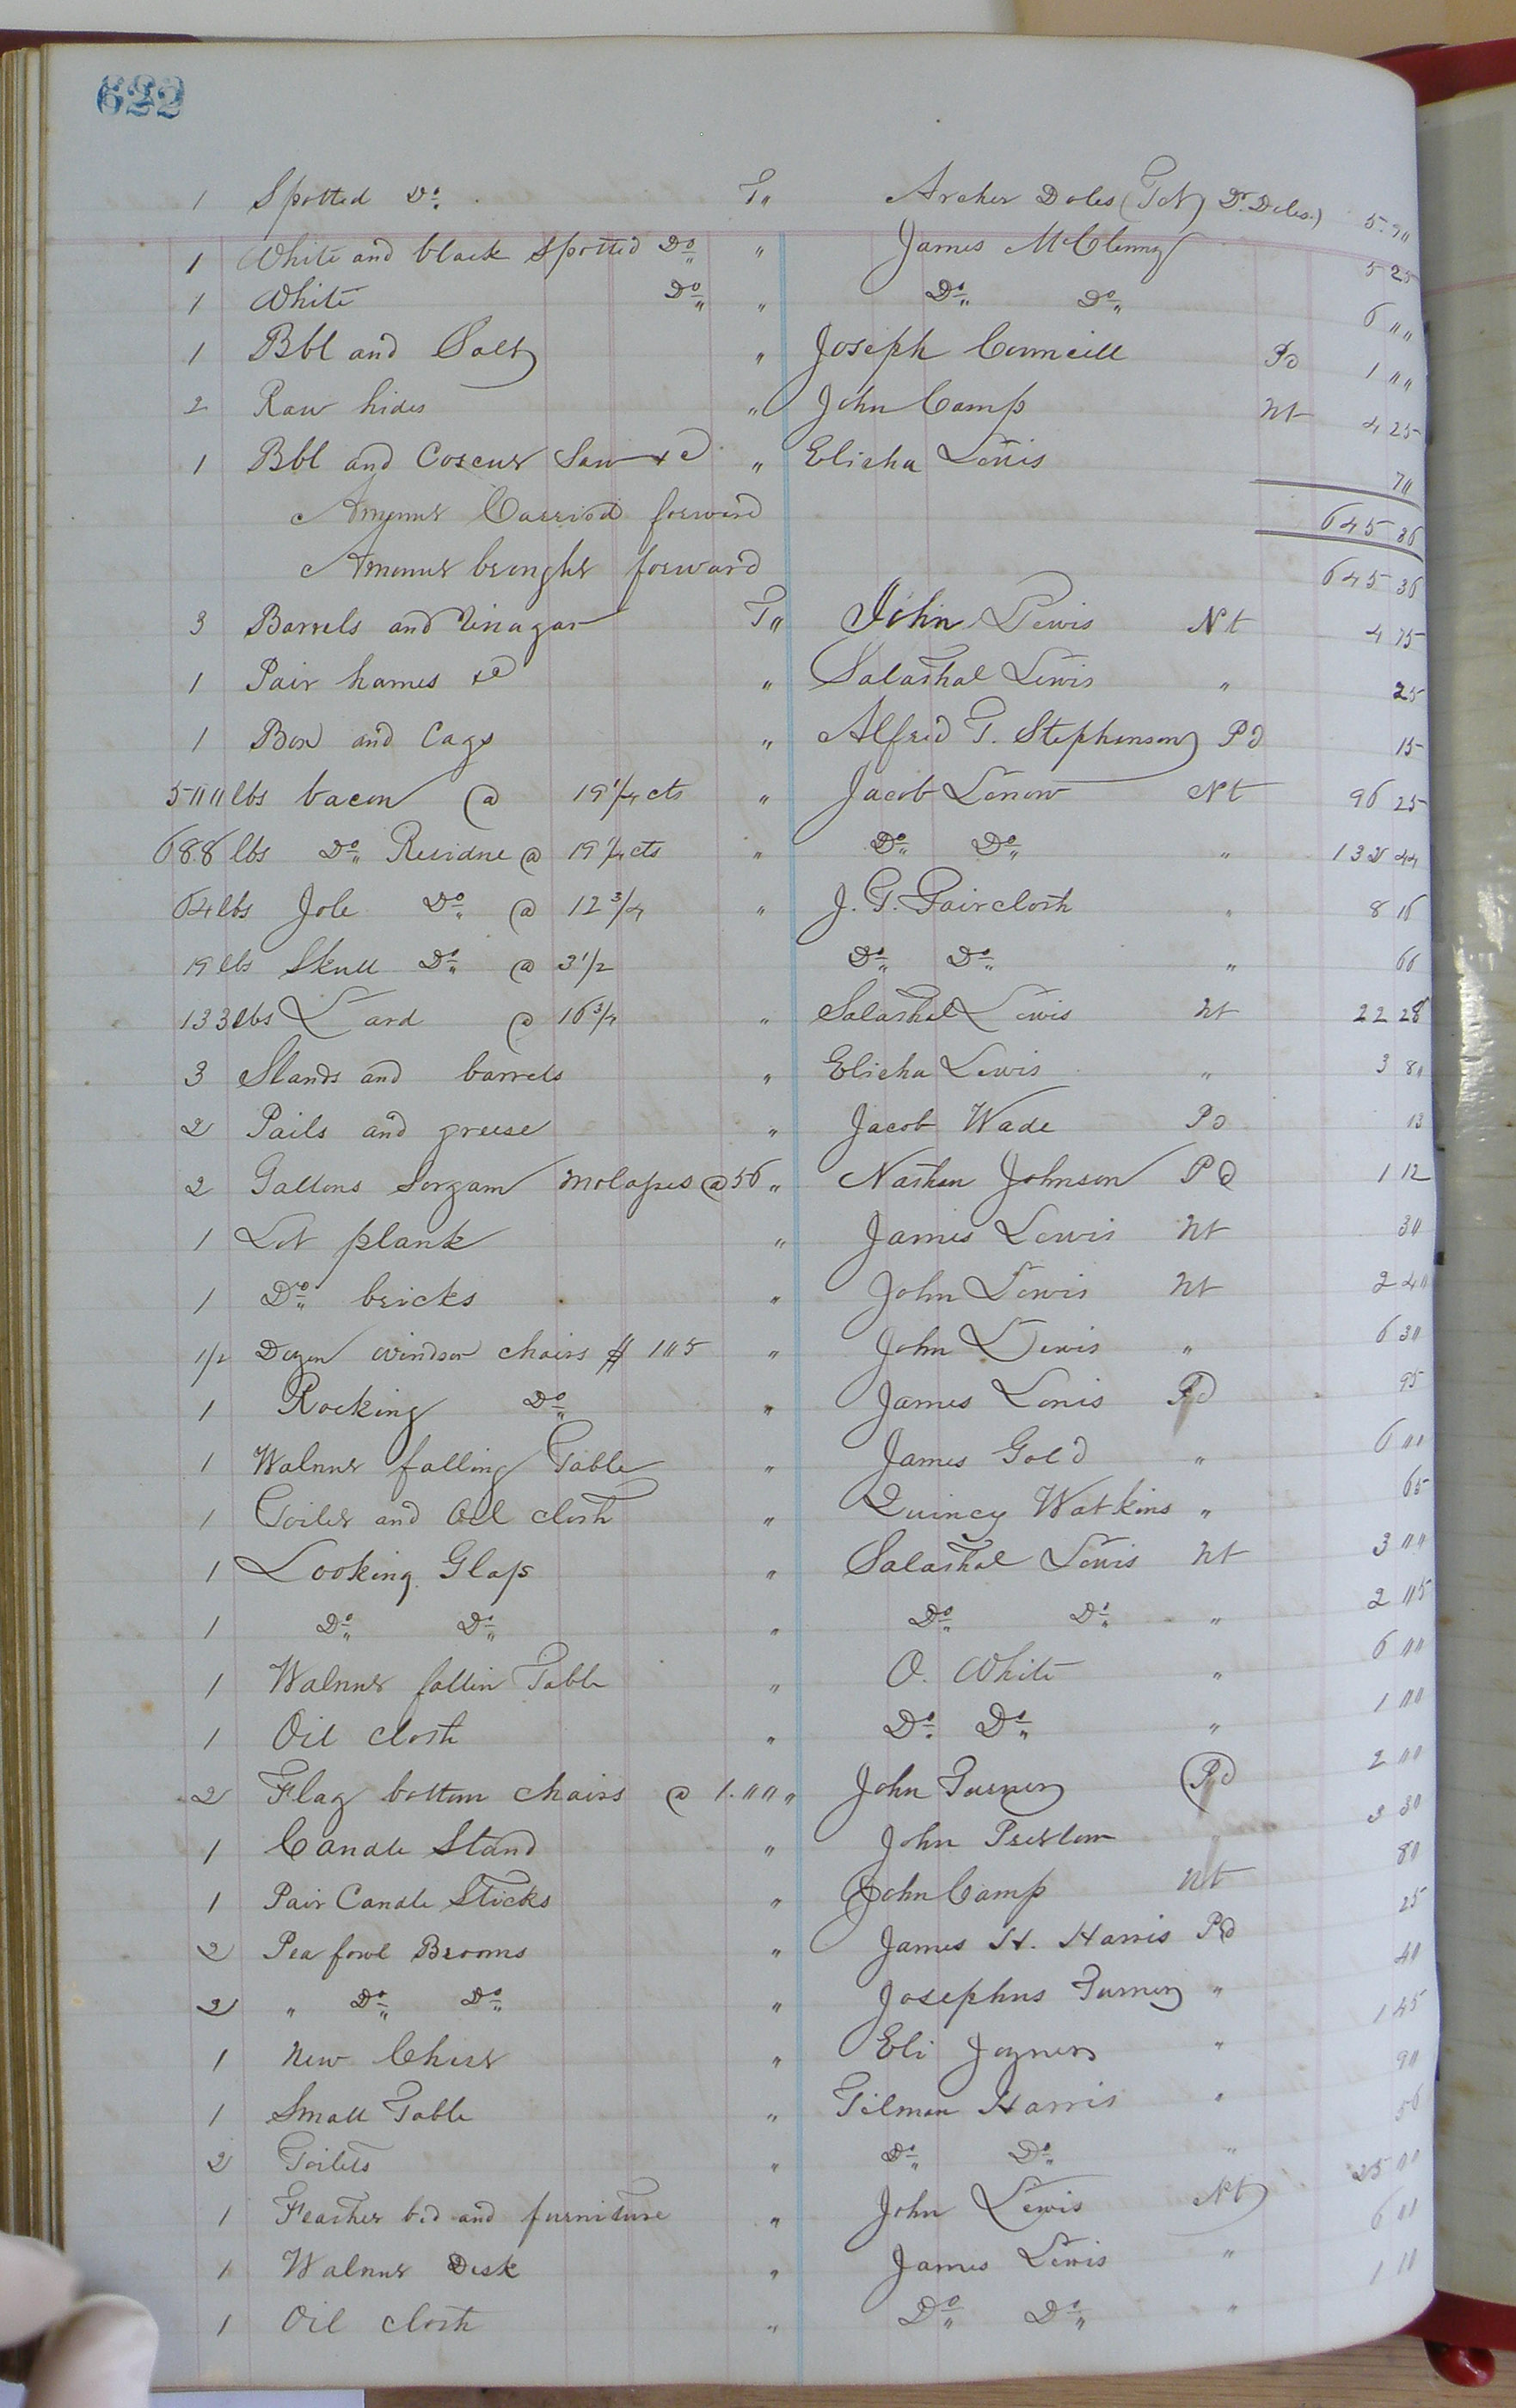 622
1 Spotted Do. T" Archer Doles (T.N) Dr. Doles.)
1 White and black Spotted Do " James McClenny 5 25
1 White Do " Do Do 6 ""
1 Bbl and Salt " Joseph Councill Pd 1 ""
2 Raw hides " John Camp Nt 4 25
1 Bbl and Saw &c " Elisha Lewis 7"
Amount Carried forward 645 36
Amount brought forward 645 36
3 Barrels and Vinagar T" John Lewis Nt 4 75
1 Pair hames &c " Salathal Lewis " 25
1 Box and Cags " Alfred T. Stephenson Pd 15
5"" lbs bacon @ 19 1/4 cts " Jacob Lenow Nt 96 25
688 lbs Do Residue @ 19 1/4 cts " Do Do " 132 44
64 lbs Jole Do @ 12 3/4 " J. T. Faircloth " 8 16
19 lbs Skull Do @ 3 1/2 Do Do " 66
133 lbs Lard @ 16 3/4 " Salathal Lewis Nt 22 28
3 Stands and barrels " Elisha Lewis " 3 8"
2 Pails and greese " Jacob Wade Pd 13
2 Gallons Sorgam Molasses @ 56 " Nathan Johnson Pd 1 12
1 Lot plank " James Lewis Nt 3"
1 Do bricks " John Lewis Nt 2 4"
1/2 Dozen windsor chairs $ 1"5 " John Lewis " 6 3"
1 Rocking Do " James Lewis Pd 95
1 Walnut falling Table " James Gold " 6 ""
1 Toilet and Oil cloth " Quincy Watkins " 65
1 Looking Glass " Salathal Lewis Nt 3 ""
1 Do Do " Do Do " 2 "5
1 Walnut fallin Table " O. White " 6 ""
1 Oil cloth " Do Do " 1 ""
2 Flag bottom chairs @ 1."" " John Turner Pd 2 ""
1 Candle Stand " John Pretlow " 3 30
1 Pair Candle Sticks " John Camp Nt 8"
2 Pea fowl Brooms " James H. Harris Pd 25
2 " Do Do " Josephus Turner " 4"
1 New Chest " Eli Joyner " 1 45
1 Small Table " Tilman Harris " 9"
2 Toilets " Do Do " 56
1 Feather bed and furniture " John Lewis Nt 25 ""
1 Walnut Desk " James Lewis " 6 ""
1 Oil cloth " Do Do " 1 1"